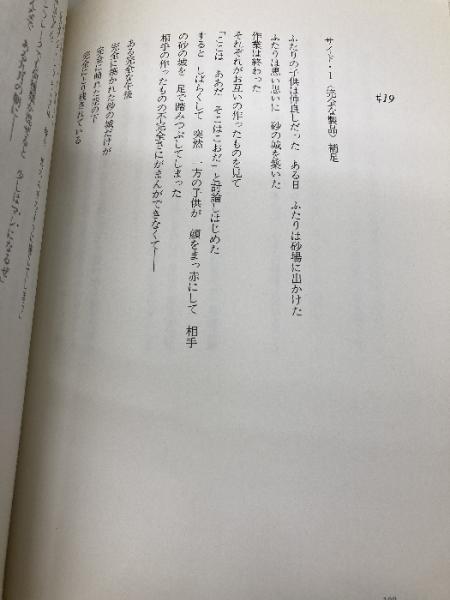 ♯19
サイド・1《完全な製品》補足
ふたりの子供は仲良しだった ある日 ふたりは砂場に出かけた
ふたりは思い思いに 砂の城を築いた
作業は終わった
それぞれがお互いの作ったものを見て
「ここは ああだ そこはこおだ」と討論しはじめた
すると しばらくして 突然 一方の子供が 顔をまっ赤にして 相手
の砂の城を 足で踏みつぶしてしまった
相手の作ったものの不完全さにがまんができなくて――
ある完全な午後
完全に築かれた砂の城だけが
完全に晴れた空の下
完全にとり残されている